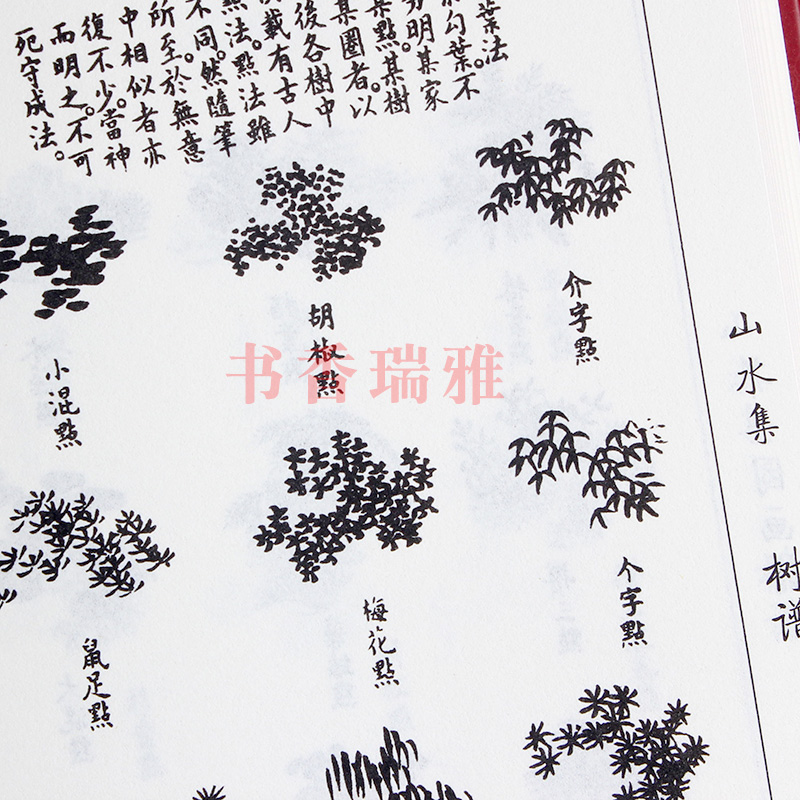 葉法
勾葉不
明某家
某點某樹
某圈者。以
後各樹中
載有古人
點法。點法雖
不同。然隨筆
所至於無意
中相似者亦
復不少。當神
而明之。不可
死守成法。
介字點
胡椒點
小混點
个字點
梅花點
鼠足點
山水集
树谱
书香瑞雅